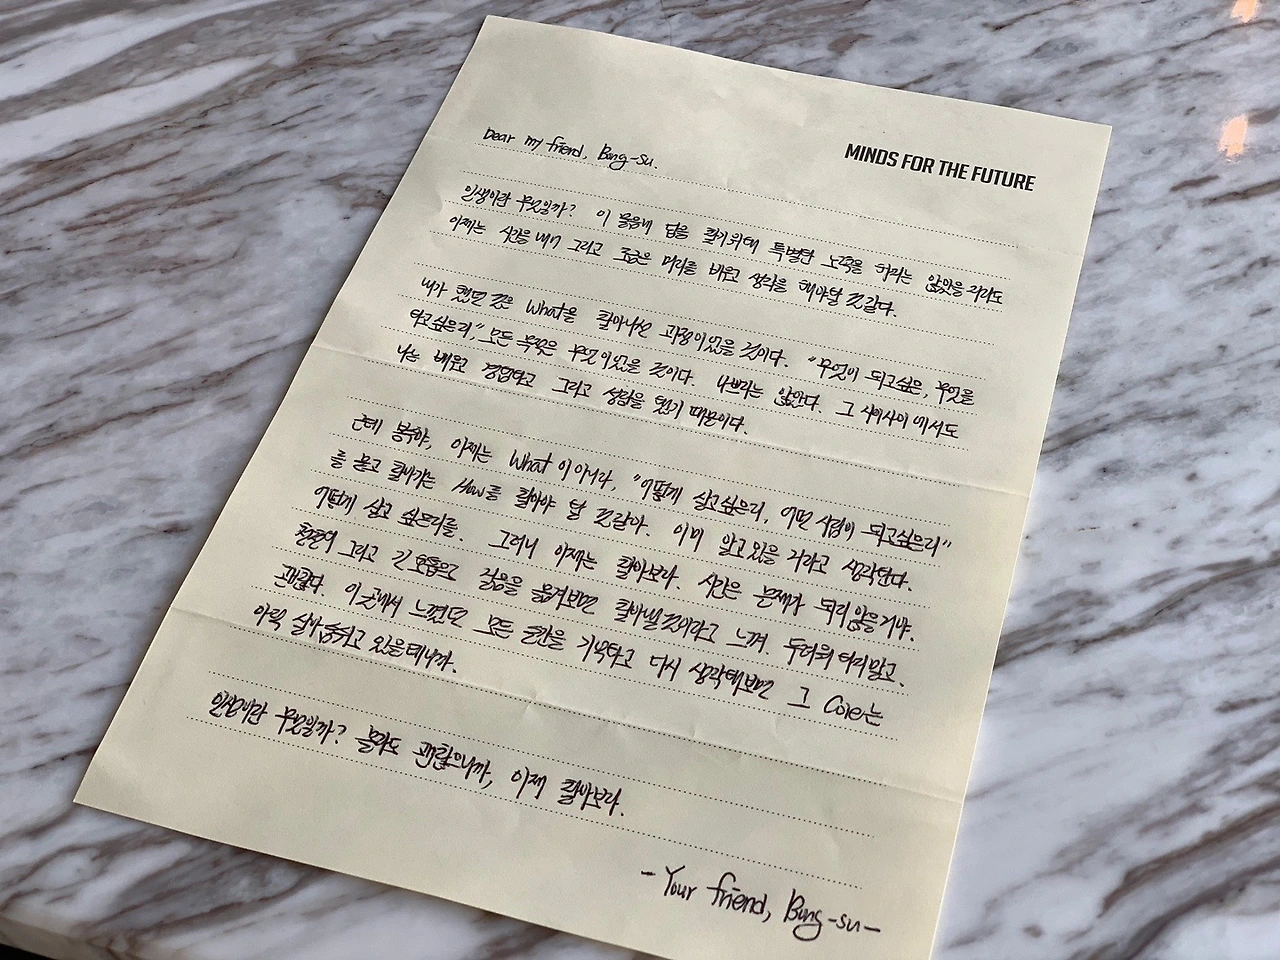 MINDS FOR THE FUTURE
Dear my friend, Bong-su.
인생이란 무엇일까? 이 물음에 답을 찾기위해 특별한 노력을 하라는 않았을지라도
이제는 시간을 내어 그리고 조금은 머리를 비우고 생각을 해야할 것 같다.
내가 했던 것은 What을 찾아나선 과정이었을 것이다. "무엇이 되고싶은, 무엇을
하고싶은지," 모든 목적은 무엇이었을 것이다. 나쁘지는 않았다. 그 사이사이에서도
나는 배우고 경험하고 그리고 성장을 했기 때문이다.
근데 봉수야, 이제는 What이 아니라, "어떻게 살고싶은지, 어떤 사람이 되고싶은지"
를 묻고 찾아가는 How를 찾아야 할 것 같아. 이미 알고있을 거라고 생각한다.
어떻게 살고 싶은지를. 그러니 이제는 찾아보라. 시간은 문제가 되지 않을거야.
천천히 그리고 긴 호흡으로 걸음을 옮겨보면 찾아낼 것이라고 느껴. 두려워하지말고.
괜찮다. 이곳에서 느꼈던 모든 순간을 기억하고 다시 생각해보면 그 Core는
아직 살아숨쉬고 있을테니까.
인생이란 무엇일까? 몰라도 괜찮으니까, 이제 찾아보라.
- Your friend, Bong-su -